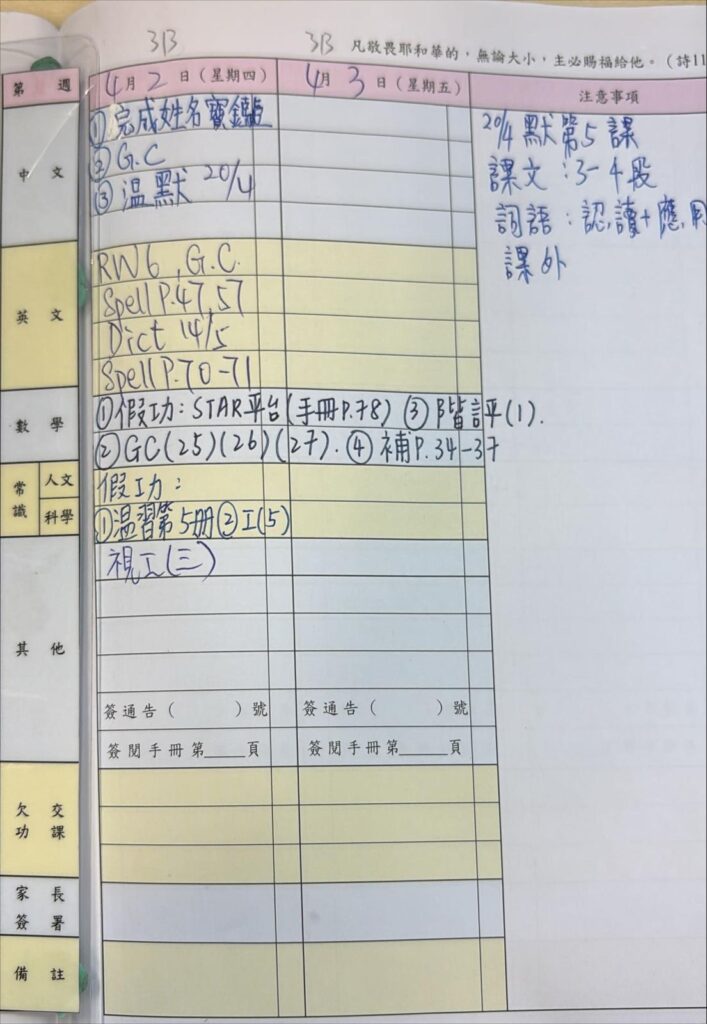 3B 3B 凡敬畏耶和華的，無論大小，主必賜福給他。（詩11
第 週 4月2日(星期四) 4月3日(星期五) 注意事項
中文
①完成姓名寶鑑
②G.C
③溫默 20/4
20/4 默第5課
課文：3-4段
詞語：認讀+應用
課外
英文
RW6, G.C.
Spell P.47, 57
Dict 14/5
Spell P.70-71
數學
①假功：STAR平台(手冊P.78) ③階評(1).
②GC(25)(26)(27). ④補P.34-37
常識 人文 科學
假功：
①溫習第5冊②工(5)
其他
視工(三)
簽通告（ ）號 簽通告（ ）號
簽閱手冊第____頁 簽閱手冊第____頁
欠交功課
家長簽署
備註